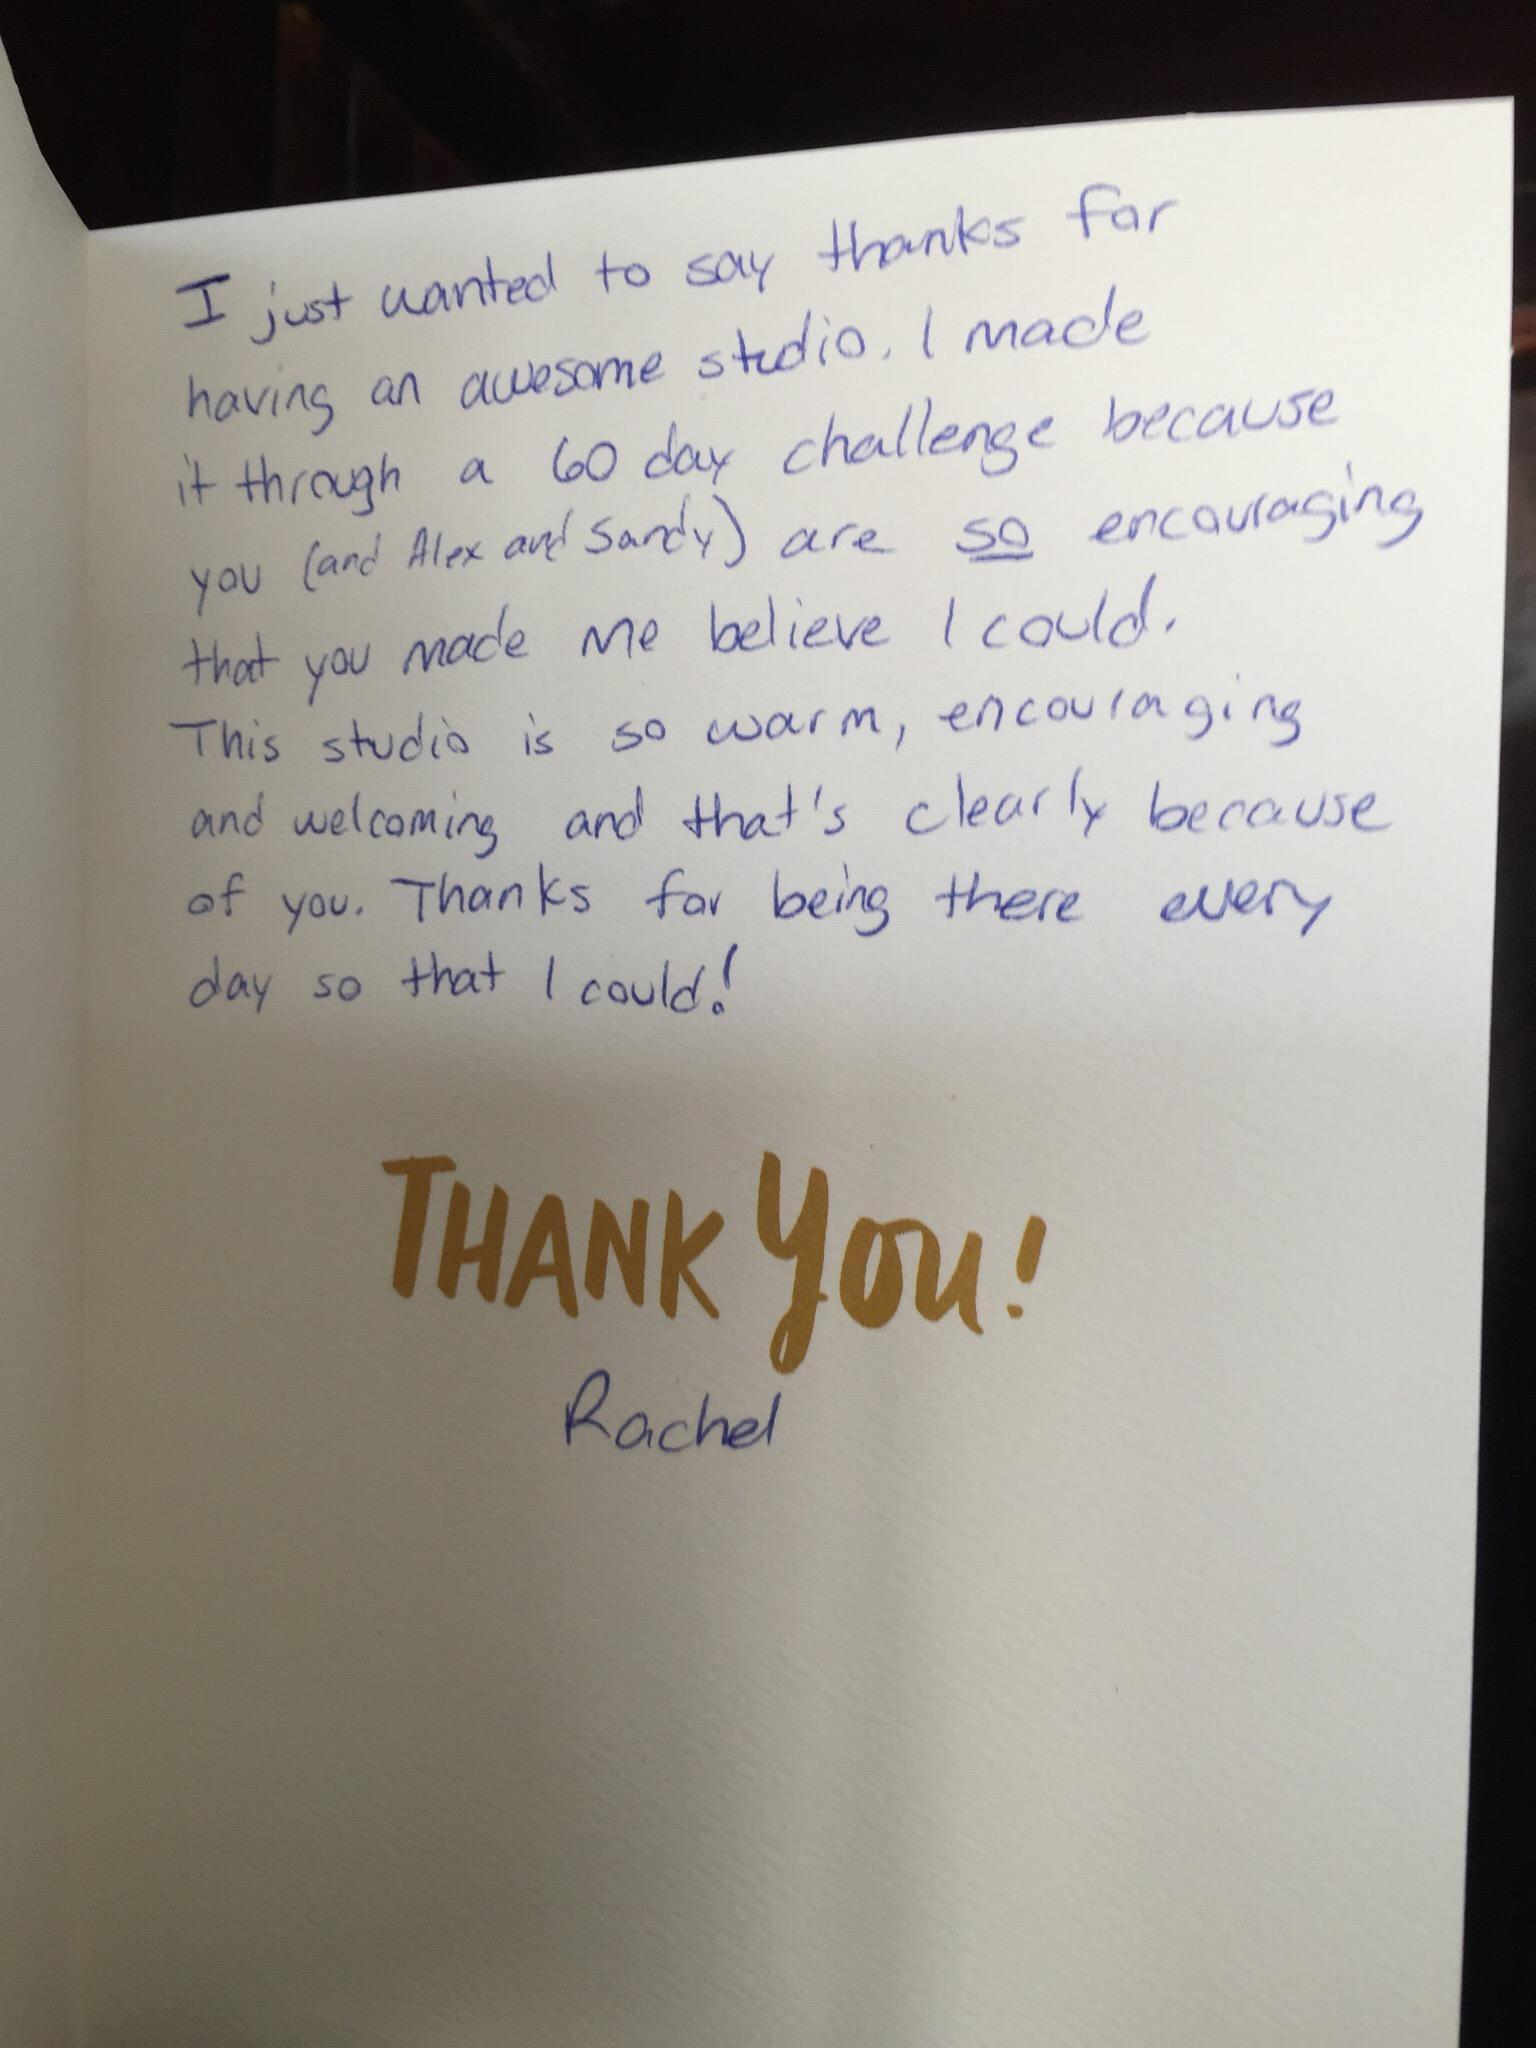 I just wanted to say thanks for
having an awesome studio. I made
it through a 60 day challenge because
you (and Alex and Sandy) are so encouraging
that you made me believe I could.
This studio is so warm, encouraging
and welcoming and that's clearly because
of you. Thanks for being there every
day so that I could!
THANK YOU!
Rachel